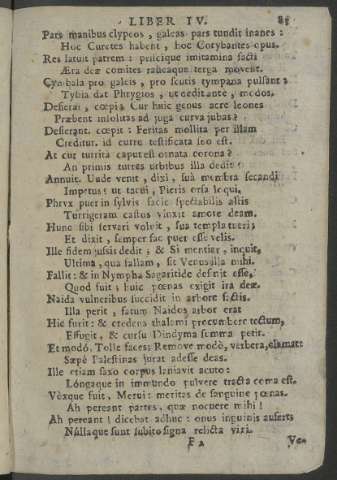 LIBER IV. 85
Pars manibus clypeos, galeas pars tundit inanes:
Hoc Curetes habent, hoc Corybantes opus.
Res latuit patrem: priscique imitamina facti
Æra deæ comites raucaque terga movent.
Cymbala pro galeis, pro scutis tympana pulsant:
Tybia dat Phrygios, ut dedit ante, modos.
Desieraɩ, cœpi: Cur huic genus acre leones
Præbent insolitas ad juga curva jubas?
Desierant. cœpit: Feritas mollita per illam
Creditur. id curru testificata suo est.
At cur turrita caput est ornata corona?
An primis turres urbibus illa dedit?
Annuit. Unde venit, dixi, sua membra secandi
Impetus? ut tacui, Pieris orsa loqui.
Phryx puer in sylvis facie spectabilis altis
Turrigeram castus vinxit amore deam.
Hunc sibi servari voluit, sua templa tueri;
Et dixit, semper fac puer esse velis.
Ille fidem jussis dedit, & Si mentier, inquit,
Ultima, qua fallam, sit Venus illa mihi.
Fallit: & in Nympha Sagaritide desinit esse,
Quod fuit; huic pœnas exigit ira deæ.
Naida vulneribus succidit in arbore factis.
Illa perit, fatum Naidos arbor erat
Hic furit: & credens thalami procumbere tectum,
Effugit, & cursu Dindyma summa petit.
Et modó, Tolle faces: Remove modè, verbera, clamat:
Sæpè Palestinas jurat adesse deas.
Ille etiam saxo corpus laniavit acuto:
Lóngaque in immundo pulvere tracta coma est.
Vòxque fuit, Merui: meritas de sanguine pœnas.
Ah pereant partes, quæ nocuere mihi!
Ah pereant! dicebat adhuc: onus inguinis aufert:
Núllaque sunt subito signa relicta viri.
F 2 Ve-